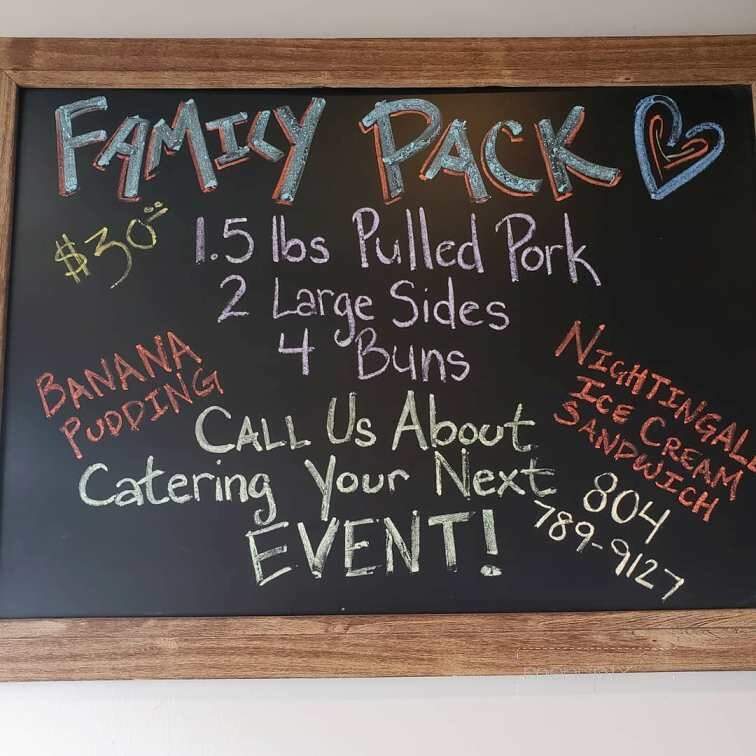 FAMILY PACK
$30.00
1.5 lbs Pulled Pork
2 Large Sides
4 Buns
BANANA
PUDDING
NIGHTINGALE
ICE CREAM
SANDWICH
CALL Us About
Catering Your Next
EVENT!
804
789-9127